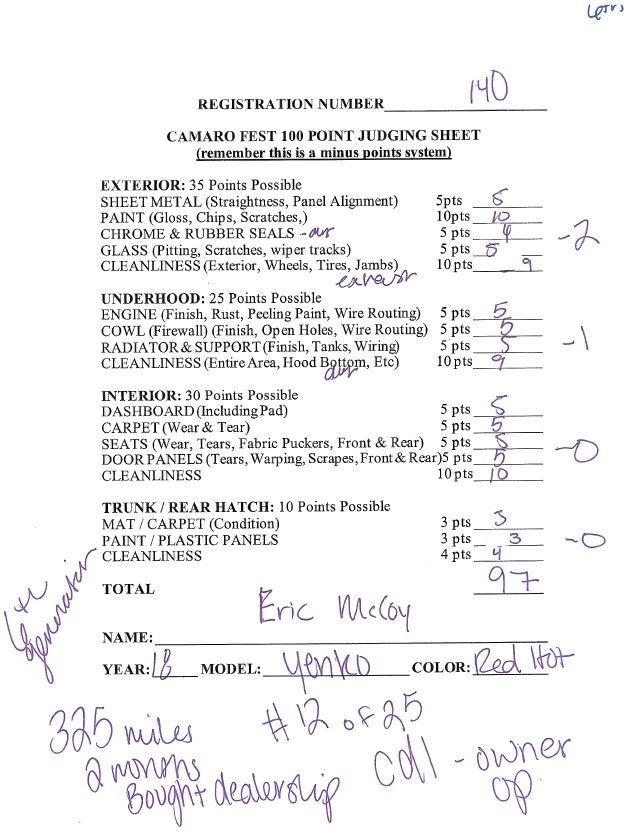 REGISTRATION NUMBER 140
CAMARO FEST 100 POINT JUDGING SHEET
(remember this is a minus points system)
EXTERIOR: 35 Points Possible
SHEET METAL (Straightness, Panel Alignment) 5pts 5
PAINT (Gloss, Chips, Scratches,) 10pts 10
CHROME & RUBBER SEALS - 5 pts 4
-2
GLASS (Pitting, Scratches, wiper tracks) 5 pts 5
CLEANLINESS (Exterior, Wheels, Tires, Jambs) 10 pts 9
exhaust
UNDERHOOD: 25 Points Possible
ENGINE (Finish, Rust, Peeling Paint, Wire Routing) 5 pts 5
COWL (Firewall) (Finish, Open Holes, Wire Routing) 5 pts 5
RADIATOR & SUPPORT (Finish, Tanks, Wiring) 5 pts 5
-1
CLEANLINESS (Entire Area, Hood Bottom, Etc) 10 pts 9
INTERIOR: 30 Points Possible
DASHBOARD (Including Pad) 5 pts 5
CARPET (Wear & Tear) 5 pts 5
SEATS (Wear, Tears, Fabric Puckers, Front & Rear) 5 pts 5
-0
DOOR PANELS (Tears, Warping, Scrapes, Front & Rear) 5 pts 5
CLEANLINESS 10 pts 10
TRUNK / REAR HATCH: 10 Points Possible
MAT / CARPET (Condition) 3 pts 3
PAINT / PLASTIC PANELS 3 pts 3
-0
CLEANLINESS 4 pts 4
TOTAL 97
generator
Eric McCoy
NAME:
YEAR: 18 MODEL: Yenko COLOR: Red Hot
325 miles
#12 of 25
2 months
Bought dealership
Call - owner
op